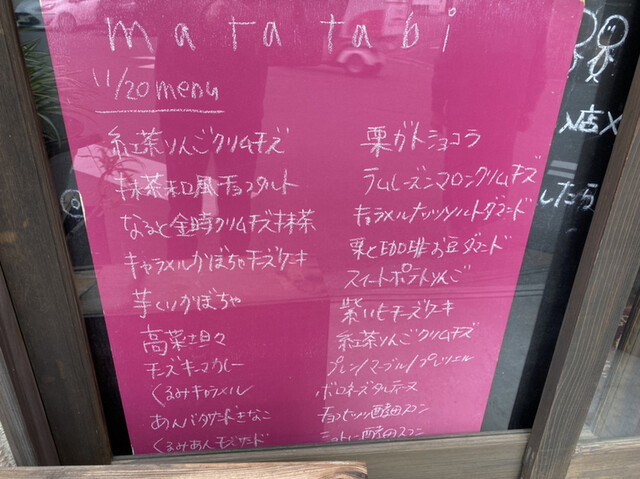 maratabi
11/20 menu
紅茶りんごクリームチーズ
抹茶和風チョコタルト
なると金時クリームチーズ抹茶
キャラメルかぼちゃチーズケーキ
芋くりかぼちゃ
高菜坦々
チーズキーマカレー
くるみキャラメル
あんバタサンドきなこ
くるみあんチーズサンド
栗ガトーショコラ
ラムレーズンマロンクリームチーズ
キャラメルナッツソルトダマンド
栗と珈琲お豆ダマンド
スイートポテトりんご
紫いもチーズケーキ
紅茶りんごクリームチーズ
プレーン/マーブル/プレッツェル
ボロネーズタルティーヌ
したら